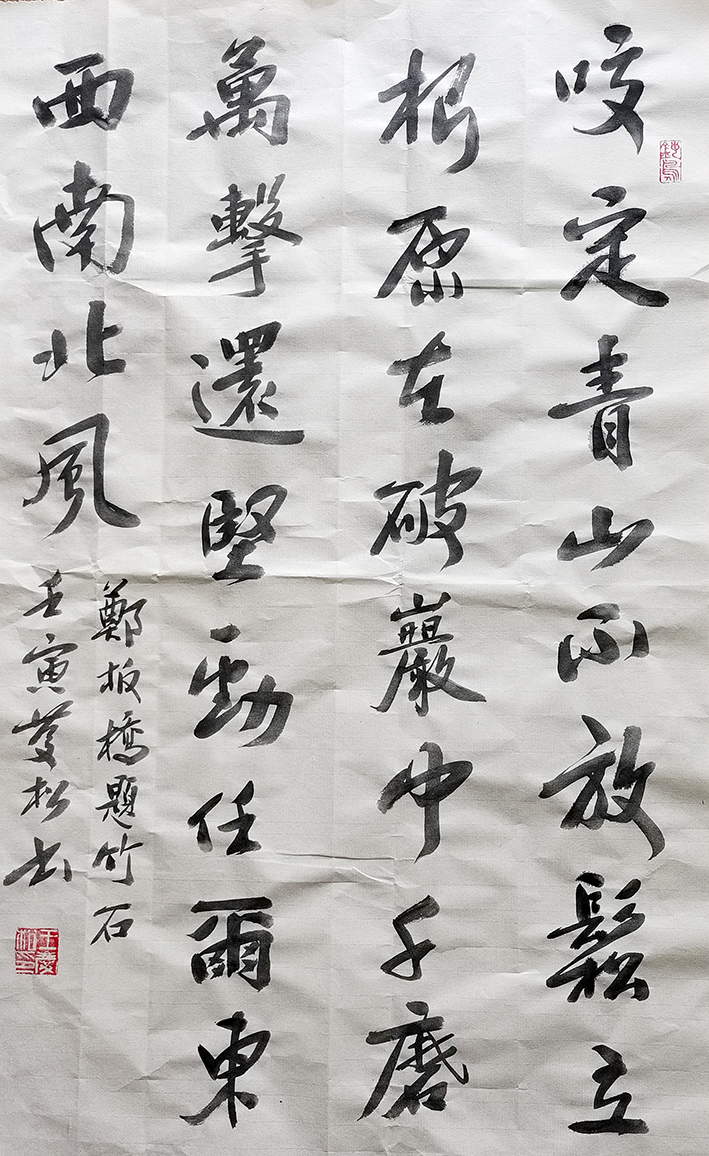 咬定青山不放鬆立
根原在破巖中千磨
萬擊還堅勁任爾東
西南北風
鄭板橋題竹石
壬寅慶松書